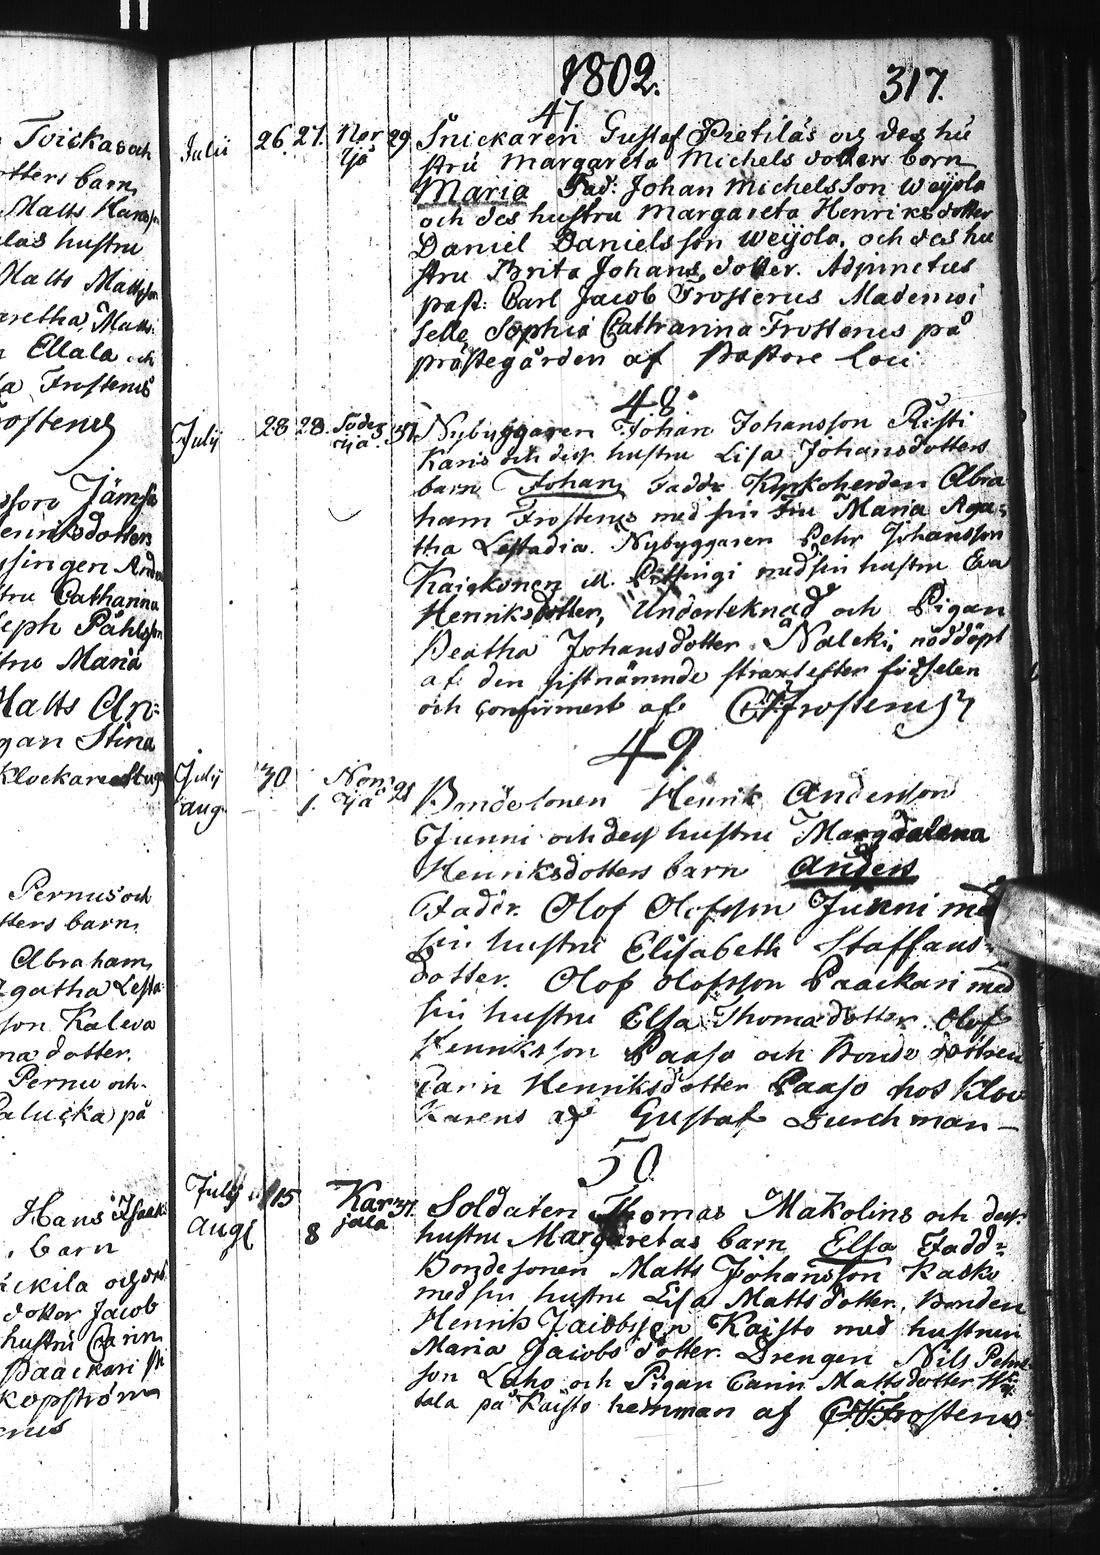 Tvickas och
otters barn
Matts Hans
las hustru
Matts Matts
aretha Matts
Ellala och
Frostenus
Jämsä
enriksdotters
singen And
stru Catharina
seph Påhls
stru Maria
Matts An
gan Stina
Klockare
Pernus och
tters barn
Abraham
Agatha Lesta
son Kaleva
dotter.
Pernu och
på
Hans Isaaks
barn
dotter Jacob
hustru Carin
Paackari
1802. 317.
47.
Julii 26. 27. Nor 29. Snickaren Gustaf Pietiläs och des hu
Yjä stru Margareta Michels dotters barn
Maria Fad: Johan Michelsson Weijola
och des hustru Margareta Henriksdotter
Daniel Danielsson Weijola, och des hu
stru Brita Johans dotter. Adjunctus
past: Carl Jacob Frosterus Mademoi
selle Sophia Catharina Frosterus på
prästegården af Pastore loci
48.
July 28 28. Söder 37. Nybyggaren Johan Johansson Risti
Yjä. Karis och dess hustru Lisa Johansdotters
barn Johan, Fadd: Kyrkoherden Abra
ham Frosterus med sin Fru Maria Aga-
tha Lestadia. Nybyggaren Pehr Johansson
med sin hustru Eva
Henriksdotter, Underteknad och Pigan
Beatha Johansdotter Naleki, nöddöpt
af den sistnämnde straxt efter födselen
och confirmert af
49
July 30 Norr 28 Bondesonen Henrik Andersson
Aug. 1. Yjä Junni och dess hustru Magdalena
Henriksdotters barn Anders
Fadd: Olof Olofsson Junni med
sin hustru Elisabeth Staffans-
dotter. Olof Olofsson Paackari med
sin hustru Elsa Thomædotter. Olof
Henriksson Paaso och Bonde dottren
Carin Henriksdotter Paaso hos Kloc
karens af Gustaf Durchman
50
July 15 Kar 37. Soldaten Thomas Makolins och dess
Aug 8 jala hustru Margaretas barn Elsa Fadd:
Bondesonen Matts Johansson Kasko
med sin hustru Lisa Mattsdotter, Bonden
Henrik Jacobsson Kaisto med hustrun
Maria Jacobs dotter. Drengen Nils Pehrs
son Laho och Pigan Carin Mattsdotter
tala på Kaisto hemman af